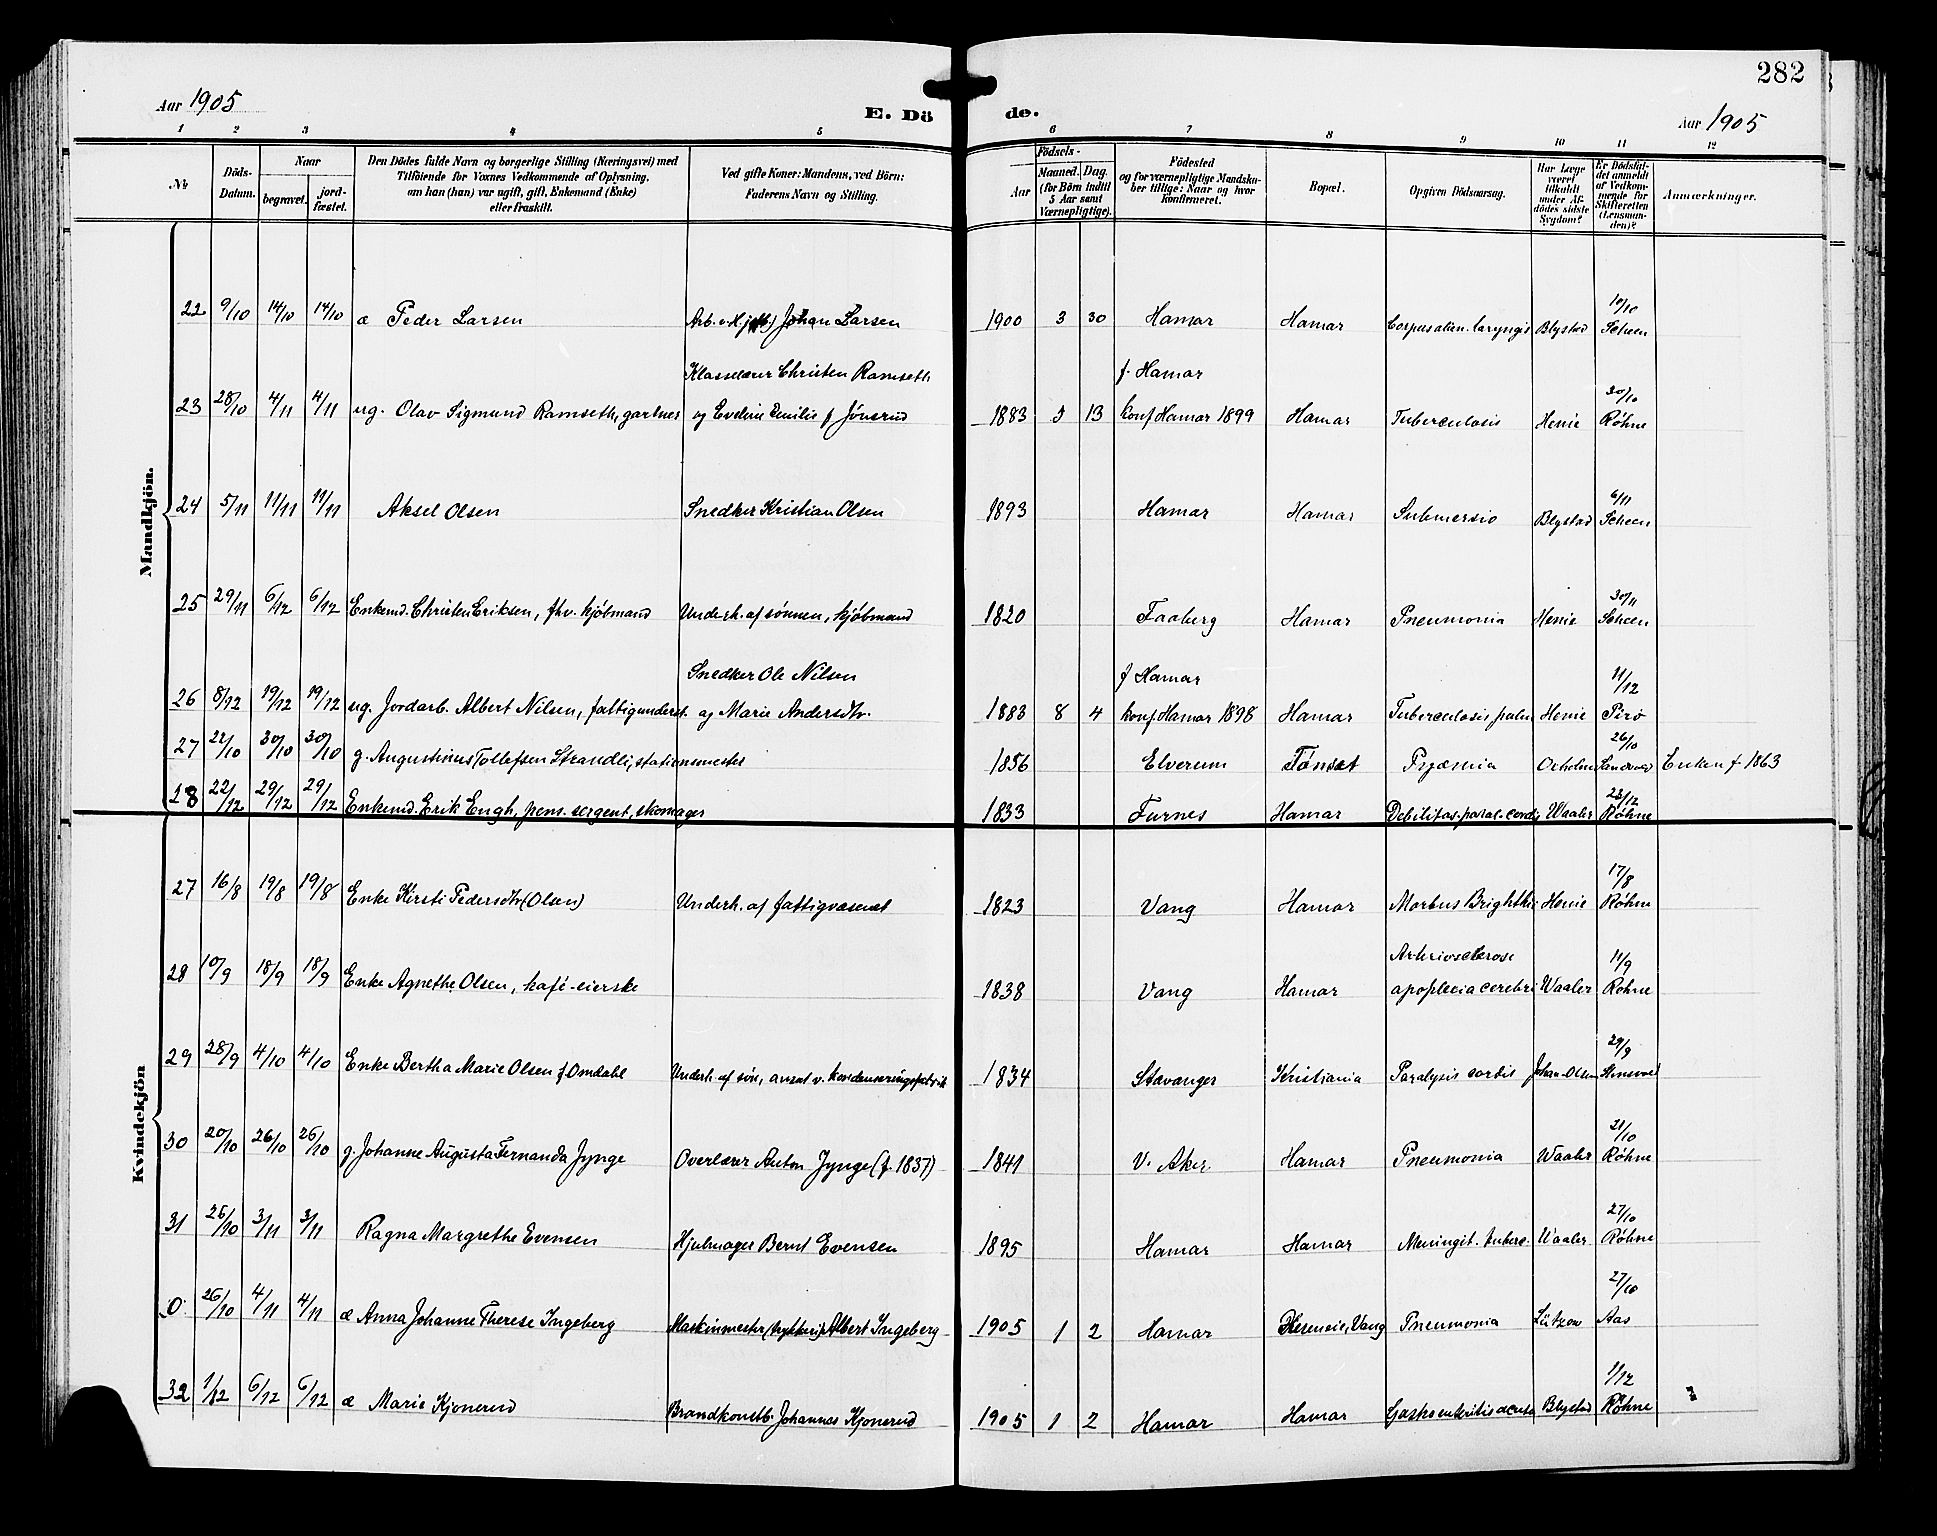 282
Aar 1905 E. Dö de. Aar 1905
1 2 3 4 5 6 7 8 9 10 11 12
No. Döds-Datum. Naar begravet. jord-fæstet. Den Dödes fulde Navn og borgerlige Stilling (Næringsvei) med Tilföiende for Voxnes Vedkommende af Oplysning, om han (hun) var ugift, gift, Enkemand (Enke) eller fraskilt. Ved gifte Koner: Mandens, ved Börn: Faderens Navn og Stilling. Födsels- Aar Maaned. Dag. (for Börn indtil 5 Aar samt Værnepligtige). Födested og for værnepligtige Mandskaber tillige: Naar og hvor konfirmeret. Bopæl. Opgiven Dödsaarsag. Har Læge været tilkaldt under Afdödes sidste Sygdom? Er Dödsfaldet anmeldt af Vedkommende for Skifteretten (Lensmanden)? Anmærkninger.
Mandkjön.
22 9/10 14/10 14/10 æ Peder Larsen Arb. v. Johan Larsen 1900 3 30 Hamar Hamar Corpus alien. laryngis Blystad 10/10 Scheen
Klasselærer Christen Ramseth f. Hamar
23 28/10 4/11 4/11 ug. Olav Sigmund Ramseth, gartner og Eveline Emilie f Jönsrud 1883 3 13 konf Hamar 1899 Hamar Tuberculosis Henie 30/10 Röhne
24 5/11 11/11 11/11 Aksel Olsen Snedker Kristian Olsen 1893 Hamar Hamar Submersio Blystad 6/11 Scheen
25 29/11 6/12 6/12 Enkemd. Christen Eriksen, fhv. kjöbmand Underh. af sönnen, kjöbmand 1820 Faaberg Hamar Pneumonia Henie 30/11 Scheen
Snedker Ole Nilsen f Hamar
26 8/12 19/12 19/12 ug. Jordarb. Albert Nilsen, fattigunderst. og Marie Andersdtr. 1883 8 4 konf Hamar 1898 Hamar Tuberculosis pulm Henie 11/12 Pirö
27 22/10 30/10 30/10 g. Augustinus Tollefsen Strandli, stationsmester 1856 Elverum Tönset Pyæmia 26/10 Enken f 1863
28 22/12 29/12 29/12 Enkemd. Erik Engh, pens. sergent, skomager 1833 Furnes Hamar Debilitas. paral. cordis Waaler 23/12 Röhne
Kvindekjön
27 16/8 19/8 19/8 Enke Kirsti Pedersdtr (Olsen) Underh. af fattigvæsenet 1823 Vang Hamar Morbus Brighthii Henie 17/8 Röhne
Arteriosclerose
28 10/9 18/9 18/9 Enke Agnethe Olsen, kafé-eierske 1838 Vang Hamar apoplexia cerebri Waaler 11/9 Röhne
29 28/9 4/10 4/10 Enke Bertha Marie Olsen f Omdahl Underh. af sön, ansat v. kondenseringsfabrik 1834 Stavanger Kristiania Paralysis cordis Johan Olsen 29/9
30 20/10 26/10 26/10 g. Johanne Augusta Fernanda Jynge Overlærer Anton Jynge (f. 1837) 1841 V. Aker Hamar Pneumonia Waaler 21/10 Röhne
31 26/10 3/11 3/11 Ragna Margrethe Evensen Hjulmager Bernt Evensen 1895 Hamar Hamar Meningit. tuberc. Waaler 27/10 Röhne
0 26/10 4/11 4/11 æ Anna Johanne Therese Ingeberg Maskinmester (trykkeri) Albert Ingeberg 1905 1 2 Hamar Vang Pneumonia Lützow 27/10 Aas
32 1/12 6/12 6/12 æ Marie Kjonerud Brandkonstb. Johannes Kjonerud 1905 1 2 Hamar Hamar Gastroenteritis acuta Blystad 1/12 Röhne